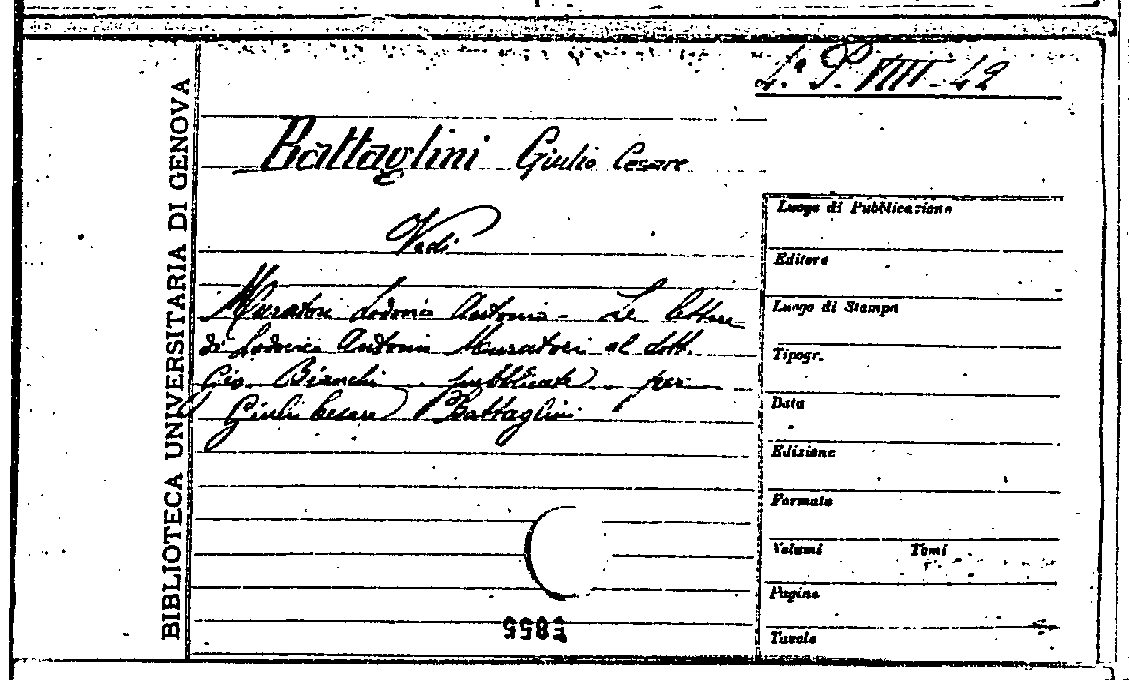 BIBLIOTECA UNIVERSITARIA DI GENOVA
Battaglini Giulio Cesare
Vedi
Muratori Lodovico Antonio - Le lettere
di Lodovico Antonio Muratori al dott.
Gio. Bianchi pubblicate per
Giulio Cesare Battaglini
Luogo di Pubblicazione
Editore
Luogo di Stampa
Tipogr.
Data
Edizione
Formato
Volumi Tomi
Pagine
Tavole